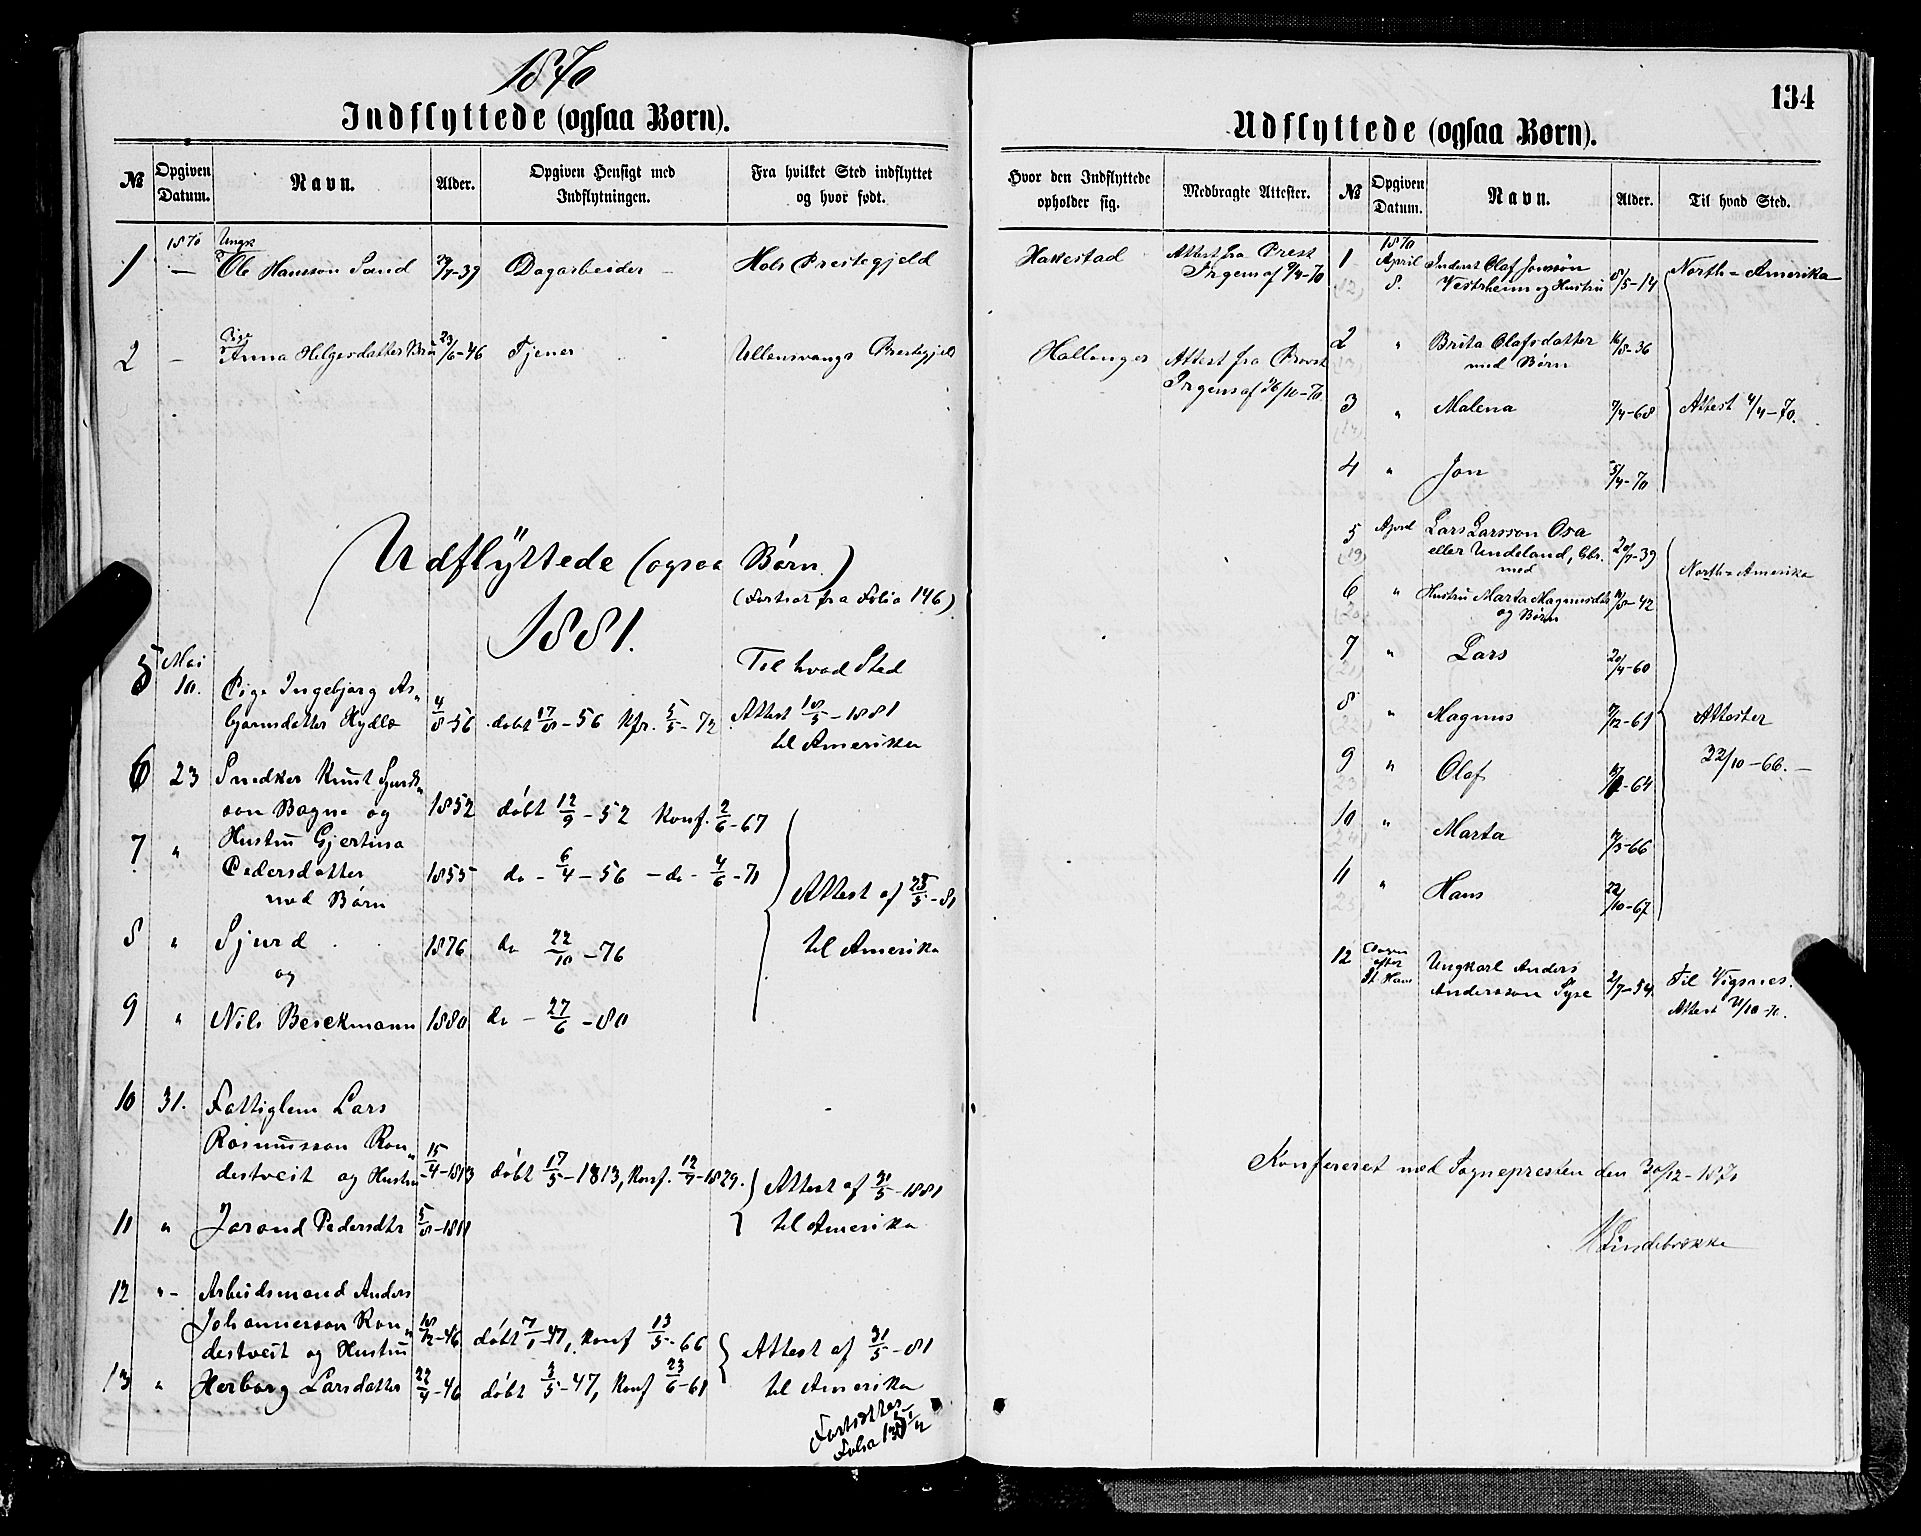 1870
Indflyttede (ogsaa Børn).
№ Opgiven Datum. Navn. Alder. Opgiven Hensigt med Indflytningen. Fra hvilket Sted indflyttet og hvor født.
1 1870 — Ungk Ole Hansson Sand 29/7-39 Dagarbeider Hols Prestegjeld
2 — Pige Anna Helgesdatter 23/6-46 Tjener Ullensvangs Prestegjeld
Udflyttede (ogsaa Børn)
(Fortsat fra Folio 146)
1881.
Til hvad Sted
5 Mai 10. Pige Ingebjørg As„
bjørnsdatter Hydle 4/8-56 døbt 17/8-56 Kfr. 5/5-72 Attest 18/5-1881
til Amerika
6 23 Snedker Knut Sjurds„
son Bagne og 1852 døbt 12/9-52 Konf. 2/6-67
7 „ Hustru Gjertina
Pedersdatter 1855 do - 6/4-56 - do - 4/6-71
med Børn
Attest af 28/5-81
8 „ Sjurd 1876 do 22/10-76 til Amerika
og
9 „ Nils Berekmann 1880 do - 27/6-80
10 31. Fattiglem Lars
Rasmusson Ron„
destveit og Hustru 15/4-1813 døbt 17/5-1813, Konf. 12/7-1829. Attest af 31/5-1881
11 „ Jorond Pedersdtr 5/8-1811 til Amerika
12 „- Arbeidsmand Anders
Johannesson Ron„
destveit og Hustru 18/12-46 døbt 7/1-47, Konf 13/5-66 Attest af 31/5-81
13 „ Herborg Larsdatter 22/4-46 døbt 3/5-47, Konf 23/6-61 til Amerika
Fortsættes
Folio
134
Udflyttede (ogsaa Børn).
Hvor den Indflyttede opholder sig. Medbragte Attester. № Opgiven Datum. Navn. Alder. Til hvad Sted.
Hakestad Attest fra Prest
Irgens af 9/4-70
Hallanger Attest fra Provst
Irgens af 26/10-70.
1 1870 April 8. Inderst Olaf Jonssøn
Vestrheim og Hustru 8/5-14 North-Amerika
2 „ Brita Olafsdatter 16/8-36
med Børn
3 „ Malena 7/4-68 Attest 4/4-70.
4 „ Jon 5/4-70
5 April Lars Larsson Osa
eller Undeland, Gbr. 20/7-39
med North-Amerika
6 „ Hustru Marta Magnusdtr 11/8-42
og Børn
7 „ Lars 20/4-60
8 „ Magnus 9/12-61 Attester
9 „ Olaf 22/10-66.-
10 „ Marta 9/3-66
11 „ Hans 22/10-67
12 Dagen efter St Hans Ungkarl Anders
Andersson Syse 2/7-54 Til Vigsnes.
Attest 21/10-70.
Konfereret med Sognepresten den 30/12-1870
H Lindebrekke